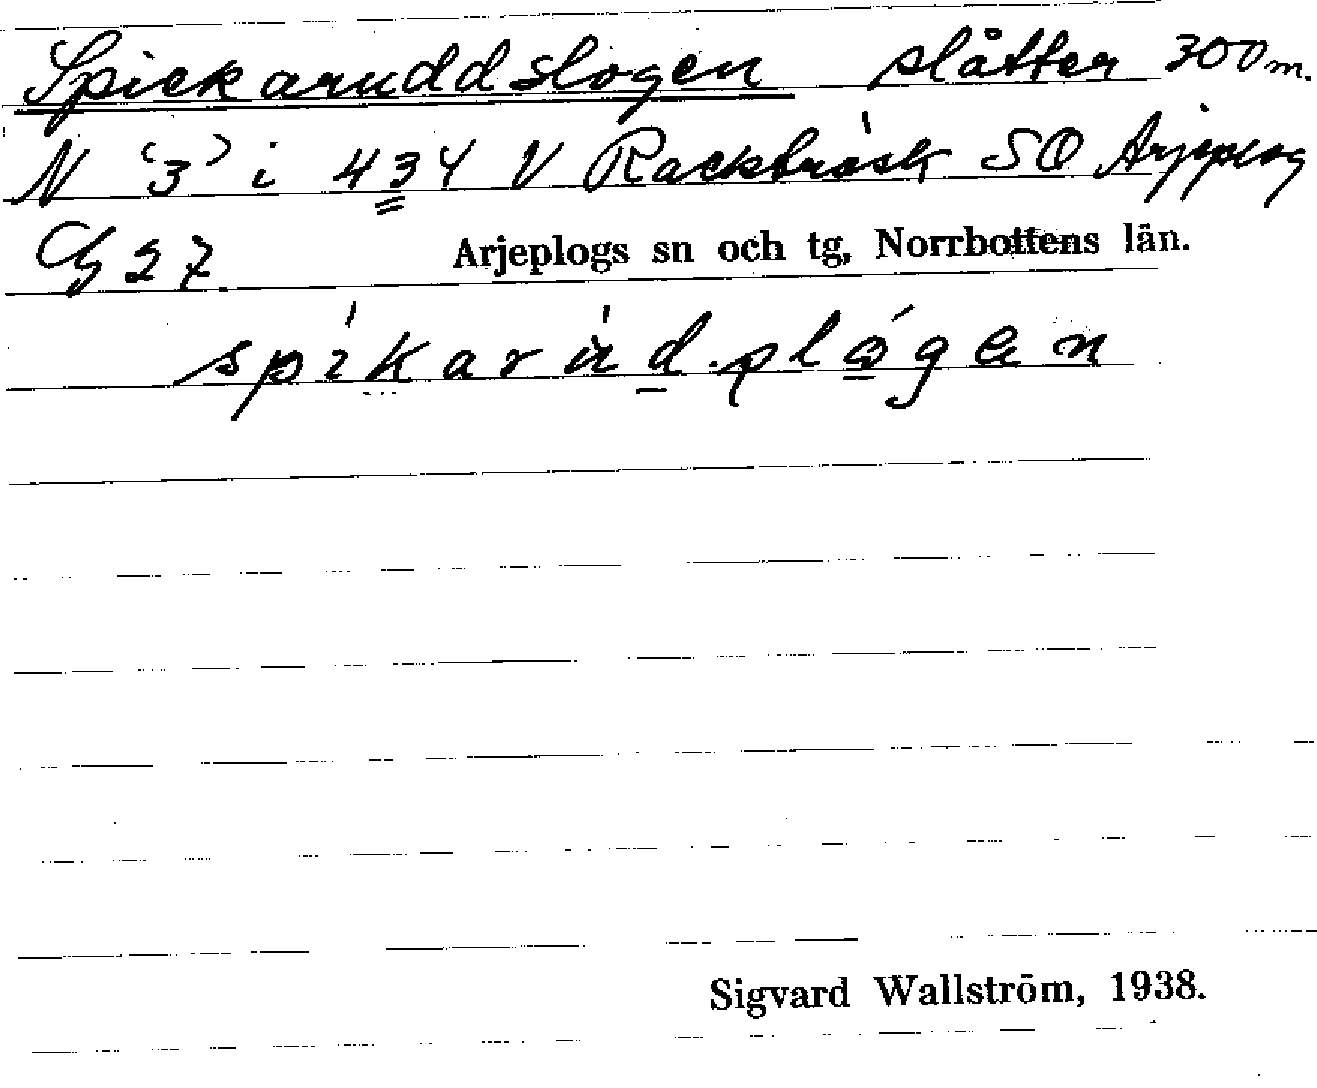 Spickaruddslogen slåtter 300 m.
N '3' i 434 V Rackträsk SO Arjeplog
G 27 Arjeplogs sn och tg, Norrbottens län.
Sigvard Wallström, 1938.